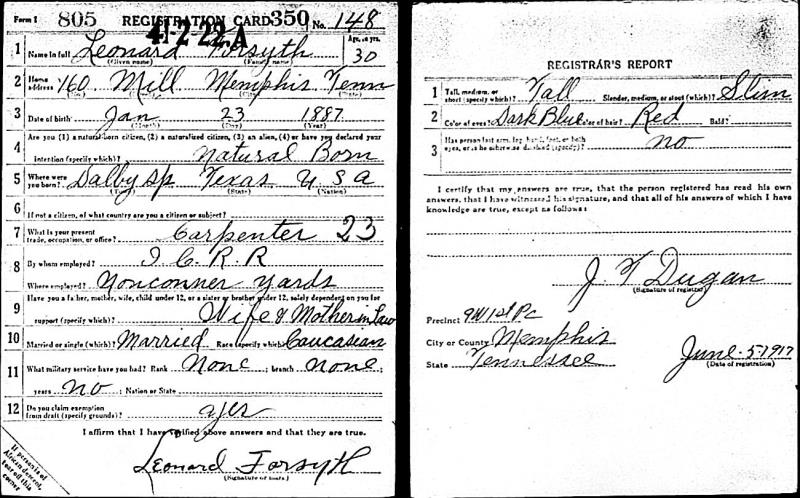 Form 1 805 REGISTRATION CARD 350 No. 148
41-2-22.A
1 Name in full Leonard Forsyth Age, in yrs. 30
(Given name) (Family name)
2 Home address 760 Mill Memphis Tenn
3 Date of birth Jan 23 1887
(Month) (Day) (Year)
4 Are you (1) a natural-born citizen, (2) a naturalized citizen, (3) an alien, (4) or have you declared your
intention (specify which)? Natural Born
5 Where were you born? Dalby Sp Texas U S A
(Town) (State) (Nation)
6 If not a citizen, of what country are you a citizen or subject?
7 What is your present trade, occupation, or office? Carpenter 23
8 By whom employed? I. C. R. R
Where employed? Yonconner Yards
9 Have you a father, mother, wife, child under 12, or a sister or brother under 12, solely dependent on you for
support (specify which)? Wife & Mother in Law
10 Married or single (which)? Married Race (specify which)? Caucasian
11 What military service have you had? Rank None ; branch none ;
years no ; Nation or State
12 Do you claim exemption from draft (specify grounds)? yes
I affirm that I have verified above answers and that they are true.
Leonard Forsyth
(Signature or mark)
If person is of African descent, tear off this corner
REGISTRAR'S REPORT
1 Tall, medium, or short (specify which)? Tall Slender, medium, or stout (which)? Slim
2 Color of eyes? Dark Blue Color of hair? Red Bald?
3 Has person lost arm, leg, hand, foot, or both eyes, or is he otherwise disabled (specify)? no
I certify that my answers are true, that the person registered has read his own
answers, that I have witnessed his signature, and that all of his answers of which I have
knowledge are true, except as follows:
J. T Dugan
(Signature of registrar)
Precinct 9W 1st Pc
City or County Memphis
State Tennessee June-5-1917
(Date of registration)